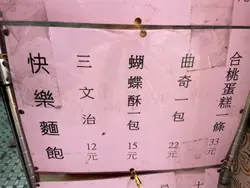 快樂麵飽
三文治
12元
蝴蝶酥一包
15元
曲奇一包
22元
合桃蛋糕一條
33元